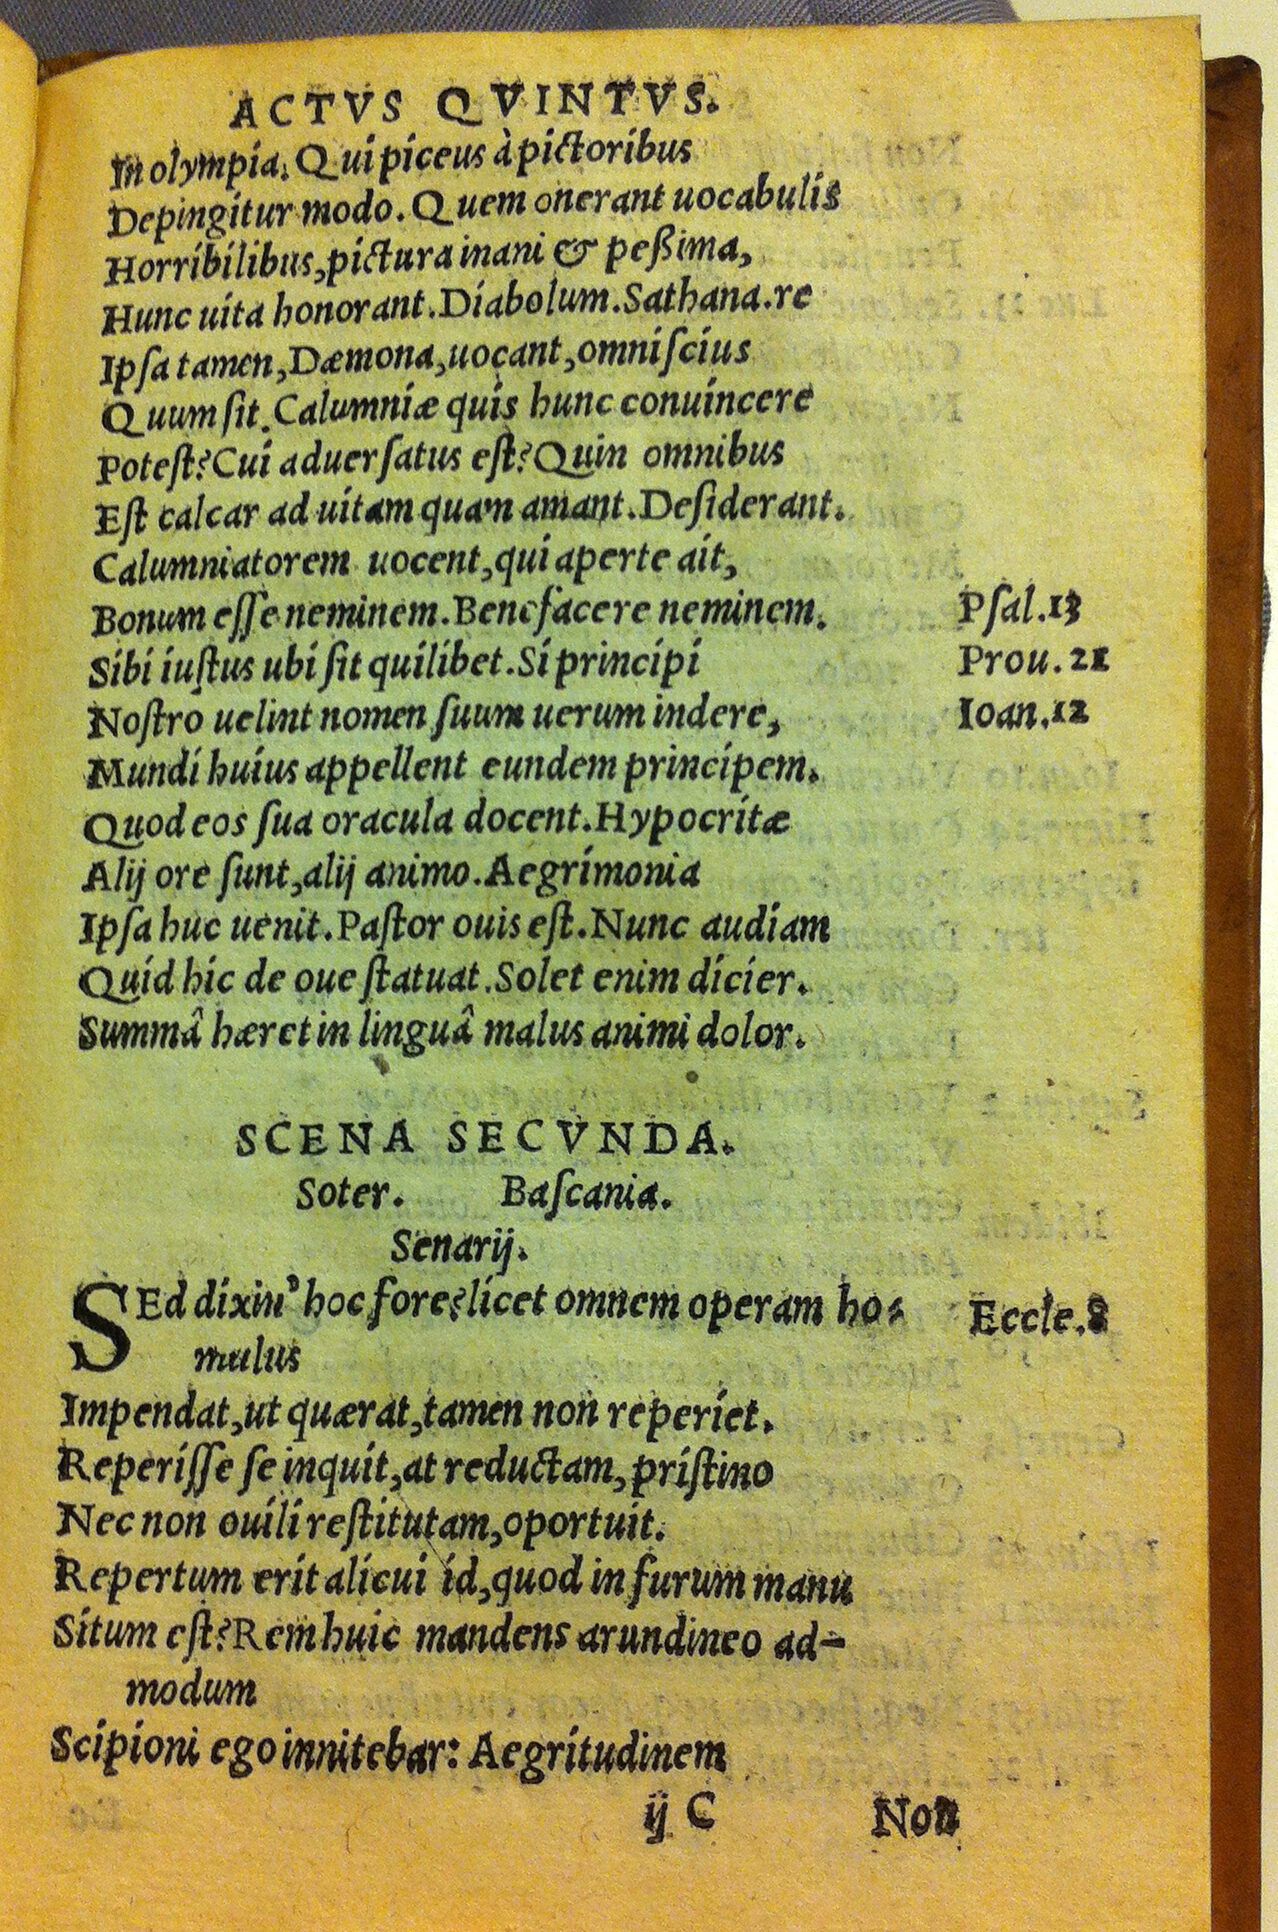 ACTVS QVINTVS.
In olympia. Qui piceus à pictoribus
Depingitur modo. Quem onerant uocabulis
Horribilibus, pictura inani & peßima,
Hunc uita honorant. Diabolum. Sathana. re
Ipſa tamen, Dæmona, uocant, omniſcius
Quum ſit. Calumniæ quis hunc conuincere
Poteſt? Cui aduerſatus eſt? Quin omnibus
Eſt calcar ad uitam quam amant. Deſiderant.
Calumniatorem uocent, qui aperte ait,
Bonum eſſe neminem. Benefacere neminem. Pſal. 13
Sibi iuſtus ubi ſit quilibet. Si principi Prou. 21
Noſtro uelint nomen ſuum uerum indere, Ioan. 12
Mundi huius appellent eundem principem.
Quod eos ſua oracula docent. Hypocritæ
Alij ore ſunt, alij animo. Aegrimonia
Ipſa huc uenit. Paſtor ouis eſt. Nunc audiam
Quid hic de oue ſtatuat. Solet enim dicier.
Summâ hæret in linguâ malus animi dolor.
SCENA SECVNDA.
Soter. Baſcania.
Senarij.
SEd dixin' hoc fore? licet omnem operam ho-
mulus
Eccle. 8
Impendat, ut quærat, tamen non reperiet.
Reperiſſe ſe inquit, at reductam, priſtino
Nec non ouili reſtitutam, oportuit.
Repertum erit alicui id, quod in furum manu
Situm eſt? Rem huic mandens arundineo ad-
modum
Scipioni ego innitebar: Aegritudinem
ij C Non